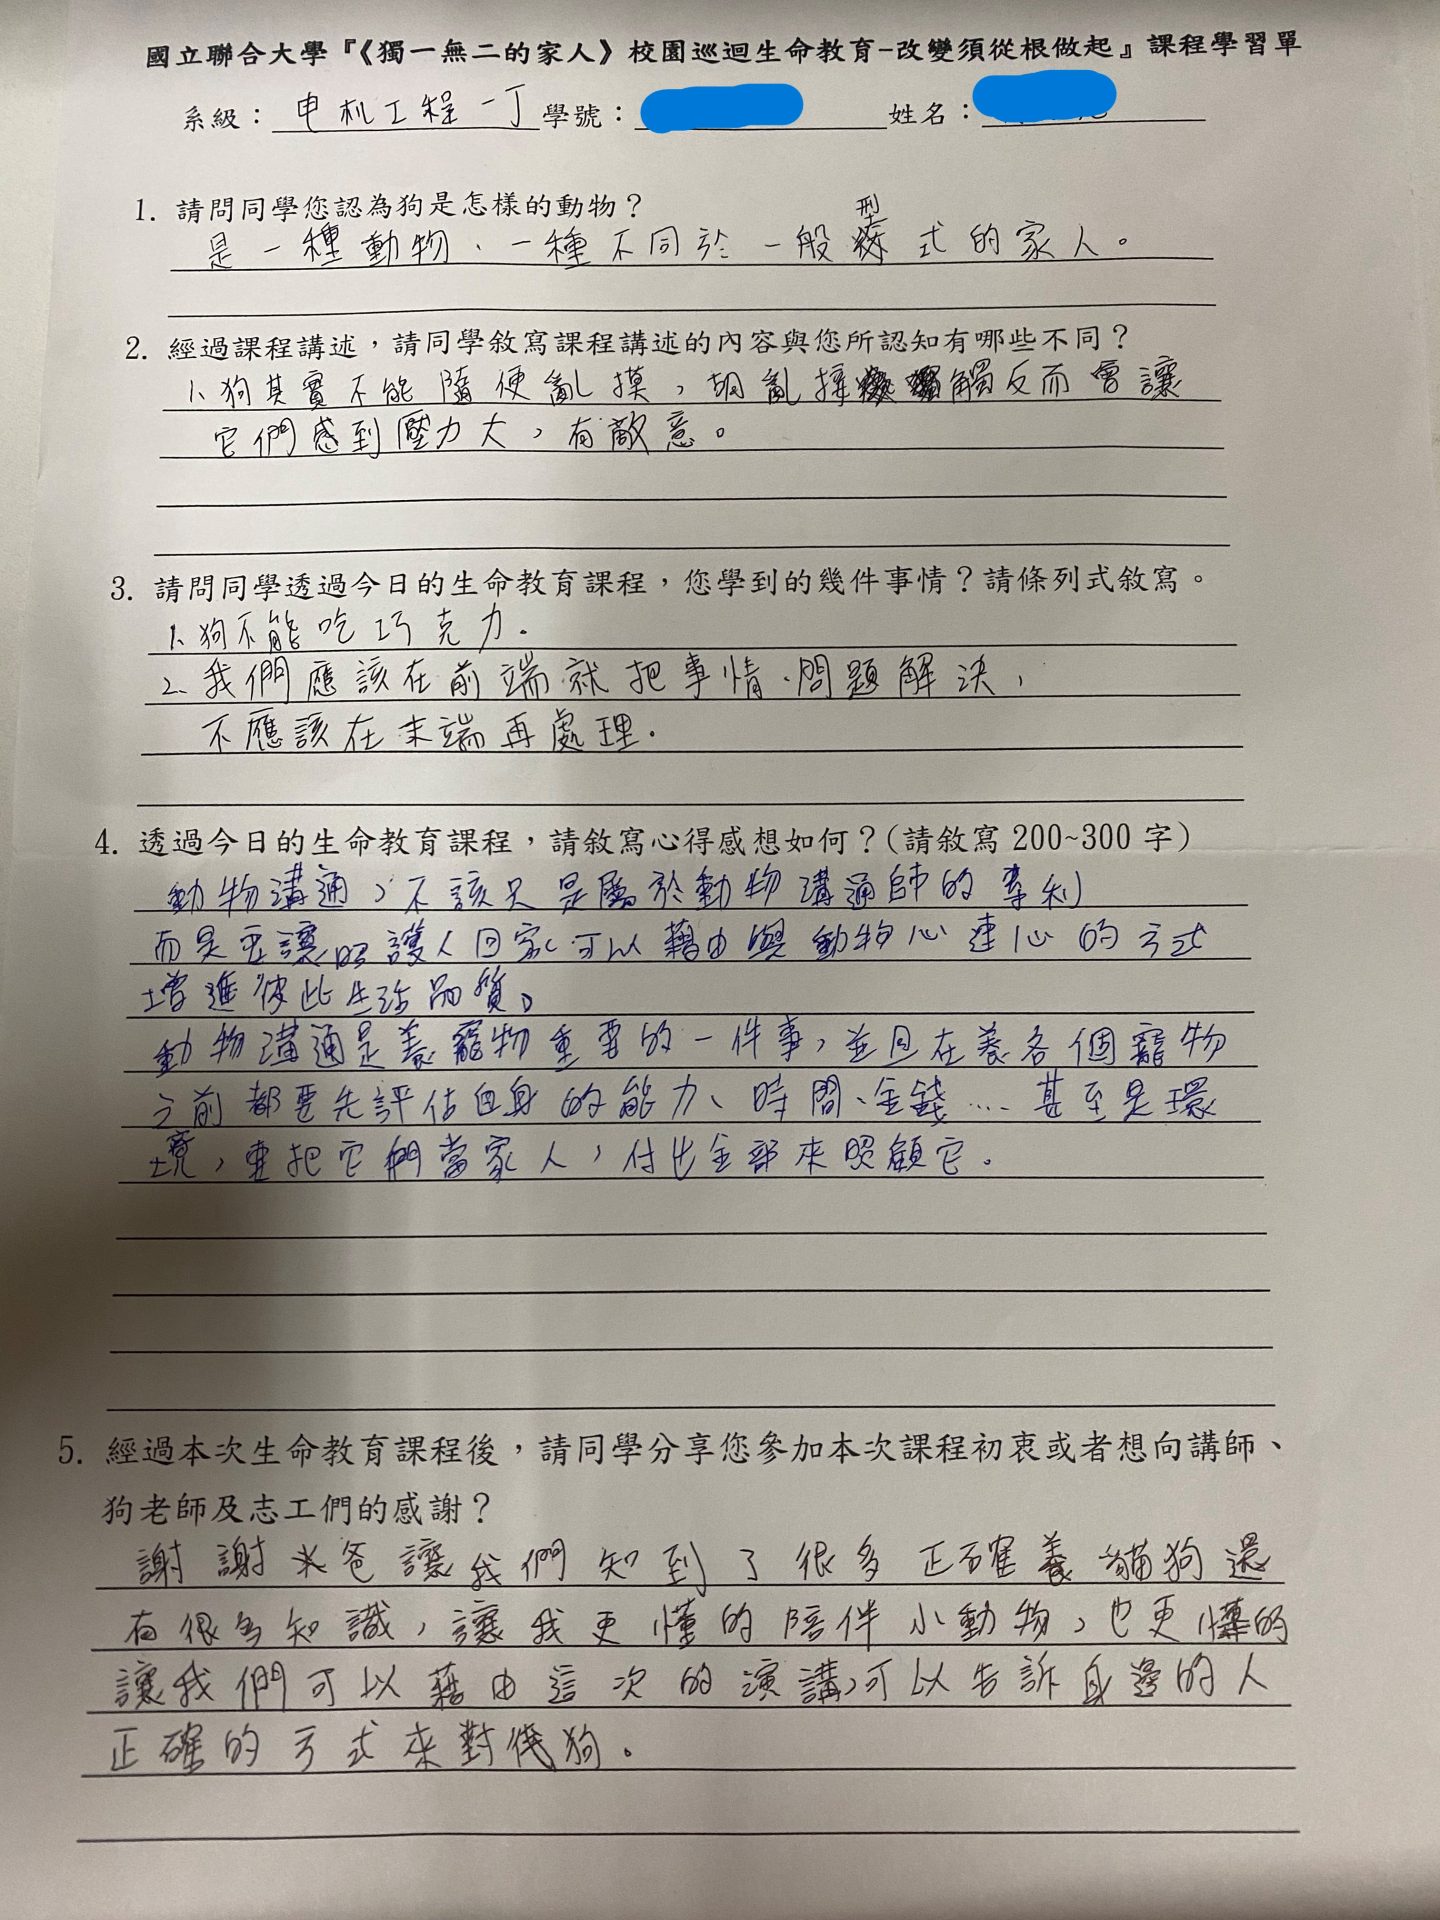 國立聯合大學『《獨一無二的家人》校園巡迴生命教育-改變須從根做起』課程學習單
系級：电机工程一丁 學號： 姓名：
1. 請問同學您認為狗是怎樣的動物？
型
是一種動物、一種不同於一般式的家人。
2. 經過課程講述，請同學敘寫課程講述的內容與您所認知有哪些不同？
1、狗其實不能隨便亂摸，胡亂接觸反而會讓
它們感到壓力大，有敵意。
3. 請問同學透過今日的生命教育課程，您學到的幾件事情？請條列式敘寫。
1、狗不能吃巧克力.
2、我們應該在前端就把事情、問題解決，
不應該在末端再處理.
4. 透過今日的生命教育課程，請敘寫心得感想如何？(請敘寫 200~300 字)
動物溝通，不該只是屬於動物溝通師的專利
而是要讓照護人回家可以藉由與動物心連心的方式
增進彼此生活品質。
動物溝通是養寵物重要的一件事，並且在養各個寵物
之前都要先評估自身的能力、時間、金錢....甚至是環
境，要把它們當家人，付出全部來照顧它。
5. 經過本次生命教育課程後，請同學分享您參加本次課程初衷或者想向講師、
狗老師及志工們的感謝？
謝謝爸讓我們知到了很多正確養貓狗還
有很多知識，讓我更懂的陪伴小動物，也更懂的
讓我們可以藉由這次的演講，可以告訴身邊的人
正確的方式來對待狗。